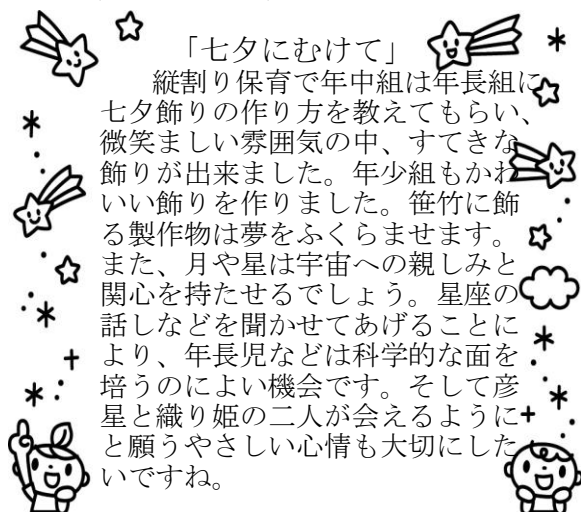 「七夕にむけて」
縦割り保育で年中組は年長組に
七夕飾りの作り方を教えてもらい、
微笑ましい雰囲気の中、すてきな
飾りが出来ました。年少組もかわ
いい飾りを作りました。笹竹に飾
る製作物は夢をふくらませます。
また、月や星は宇宙への親しみと
関心を持たせるでしょう。星座の
話しなどを聞かせてあげることに
より、年長児などは科学的な面を
培うのによい機会です。そして彦
星と織り姫の二人が会えるように
と願うやさしい心情も大切にした
いですね。